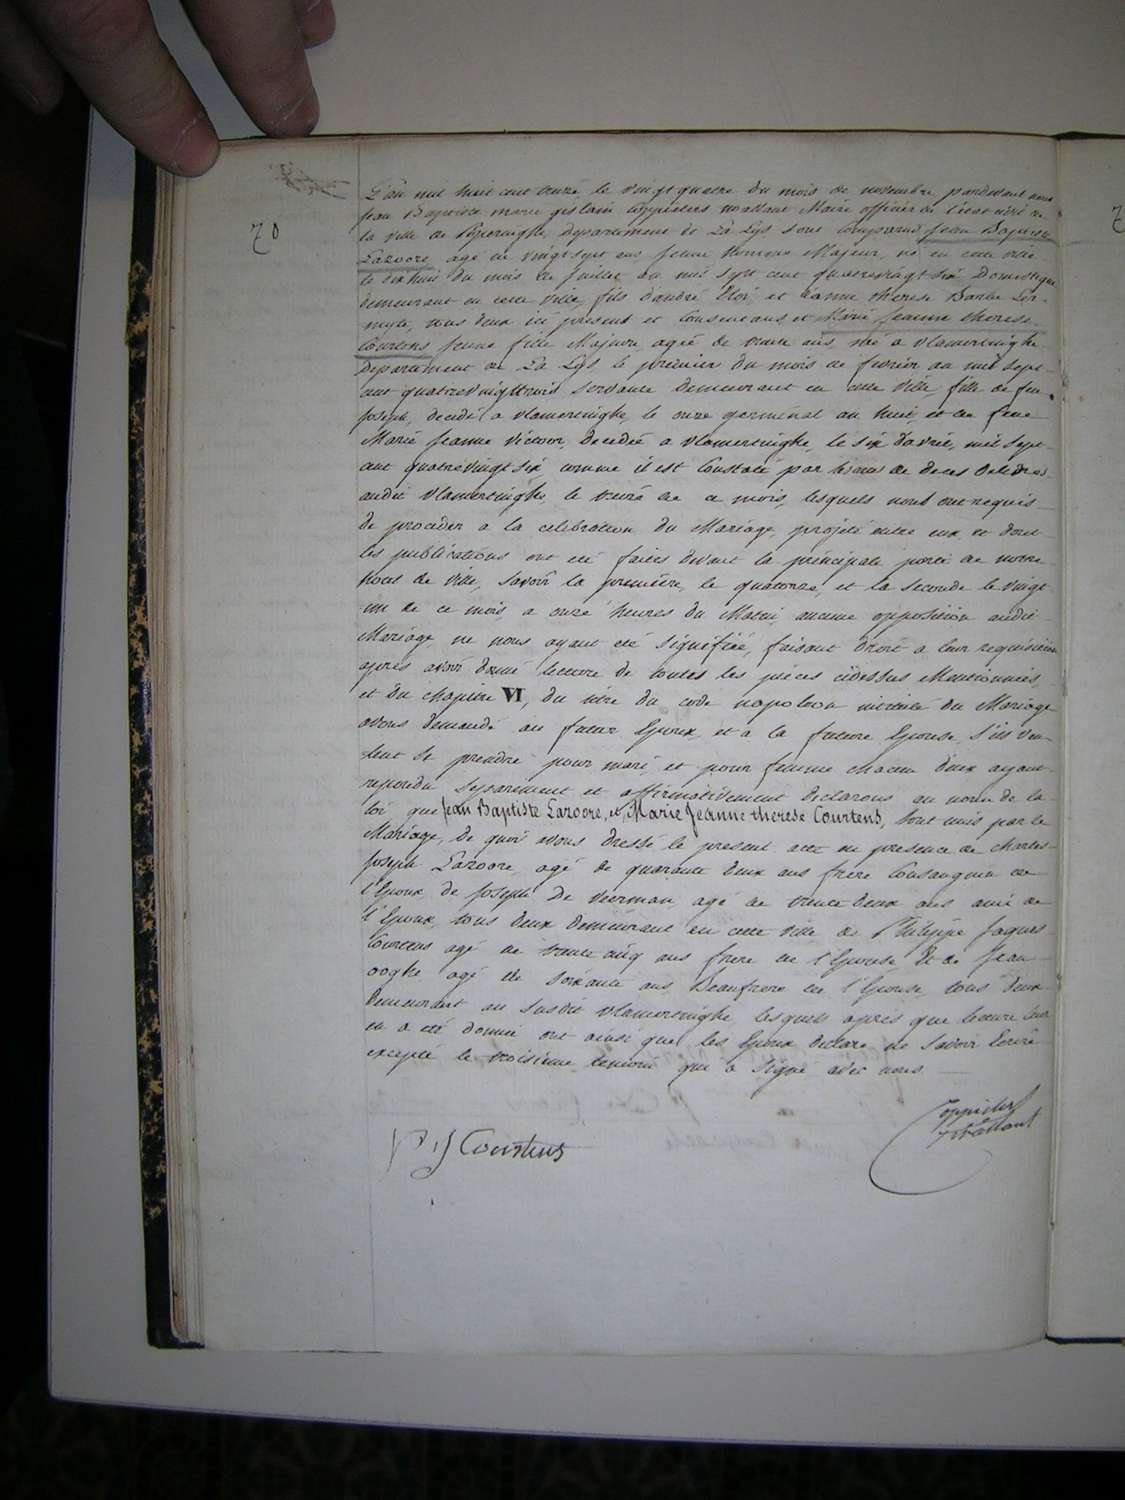 70
L'an mil huit cent treize le vingt quatre du mois de novembre pardevant nous
Jean Baptiste marie gislain Coppieters wallant Maire officier de l'état civil de
la ville de Poperinghe, Departement de La Lys sont Comparus Jean Baptiste
Lazoore, agé de vingt sept ans jeune homme Majeur, né en cette ville
le dix huit du mois de Juillet an mil sept cent quatrevingt six Domestique
demeurant en cette ville, fils d'andré Eloi, et d'anne therese Barbe Ler-
myte, tous deux ici present et Consentans, et Marie Jeanne therese
Courtens jeune fille Majeure, agée de trente ans, née a vlamertinghe
Departement de La Lys le premier du mois de fevrier an mil sept
cent quatrevingttrois servante demeurant en cette ville, fille de feu
Joseph, decedé a vlamertinghe, le onze germinal an huit, et de feue
Marie Jeanne Victoor, decedée a vlamertinghe, le six d'avril, mil sept
cent quatrevingt six comme il est Constaté par les de deces delivrés
audit vlamertinghe, le treize de ce mois, lesquels nous ont requis
de proceder a la celebration du Mariage projeté entre eux, et dont
les publications ont été faites devant la principale porte de notre
hotel de ville, savoir la première, le quatorze, et la seconde le vingt
un de ce mois, a onze heures du Matin, aucune opposition audit
Mariage ne nous ayant été signifiée, faisant droit a leur requisition
après avoir donné lecture de toutes les pièces cidessus Mentionnées,
et du chapitre VI, du titre du code napoleon intitulé du Mariage
avons demandé au futur Epoux, et a la future Epouse, s'ils veu-
lent se prendre pour mari et pour femme chacun d'eux ayant
repondu separement et affirmativement declarons au nom de la
loi que Jean Baptiste Lazoore, et Marie Jeanne therese Courtens, sont unis par le
Mariage, de quoi avons dressé le present acte en presence de Charles
Joseph Lazoore, agé de quarante deux ans frere Consanguin de
l'Epoux, de Joseph De veerman, agé de trente deux ans ami de
l'Epoux, tous deux demeurant en cette ville de Philippe Jaques
Courtens agé de trente cinq ans frere de l'Epouse, Et de Jean
ooghe agé de soixante ans, Beaufrere de l'Epouse, tous deux
demeurant au susdit vlamertinghe, lesquels après que lecture leur
en a été donné ont ainsi que les Epoux declaré ne savoir Ecrire
excepté le troisieme temoin qui a signé avec nous
P J Courtens
Coppieters
wallant